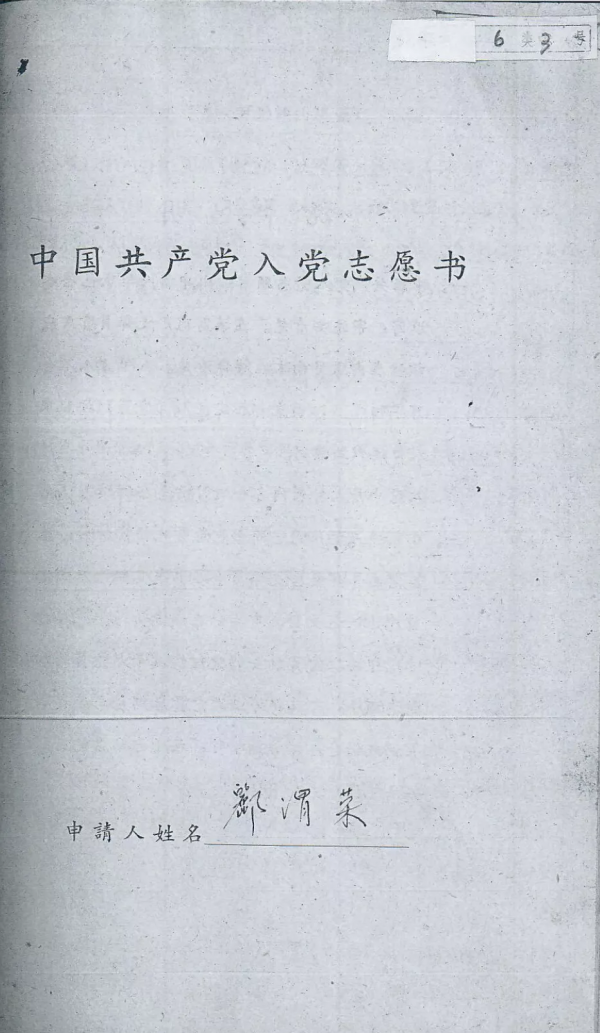 6 类 3 号
中国共产党入党志愿书
申請人姓名 酈渭荣